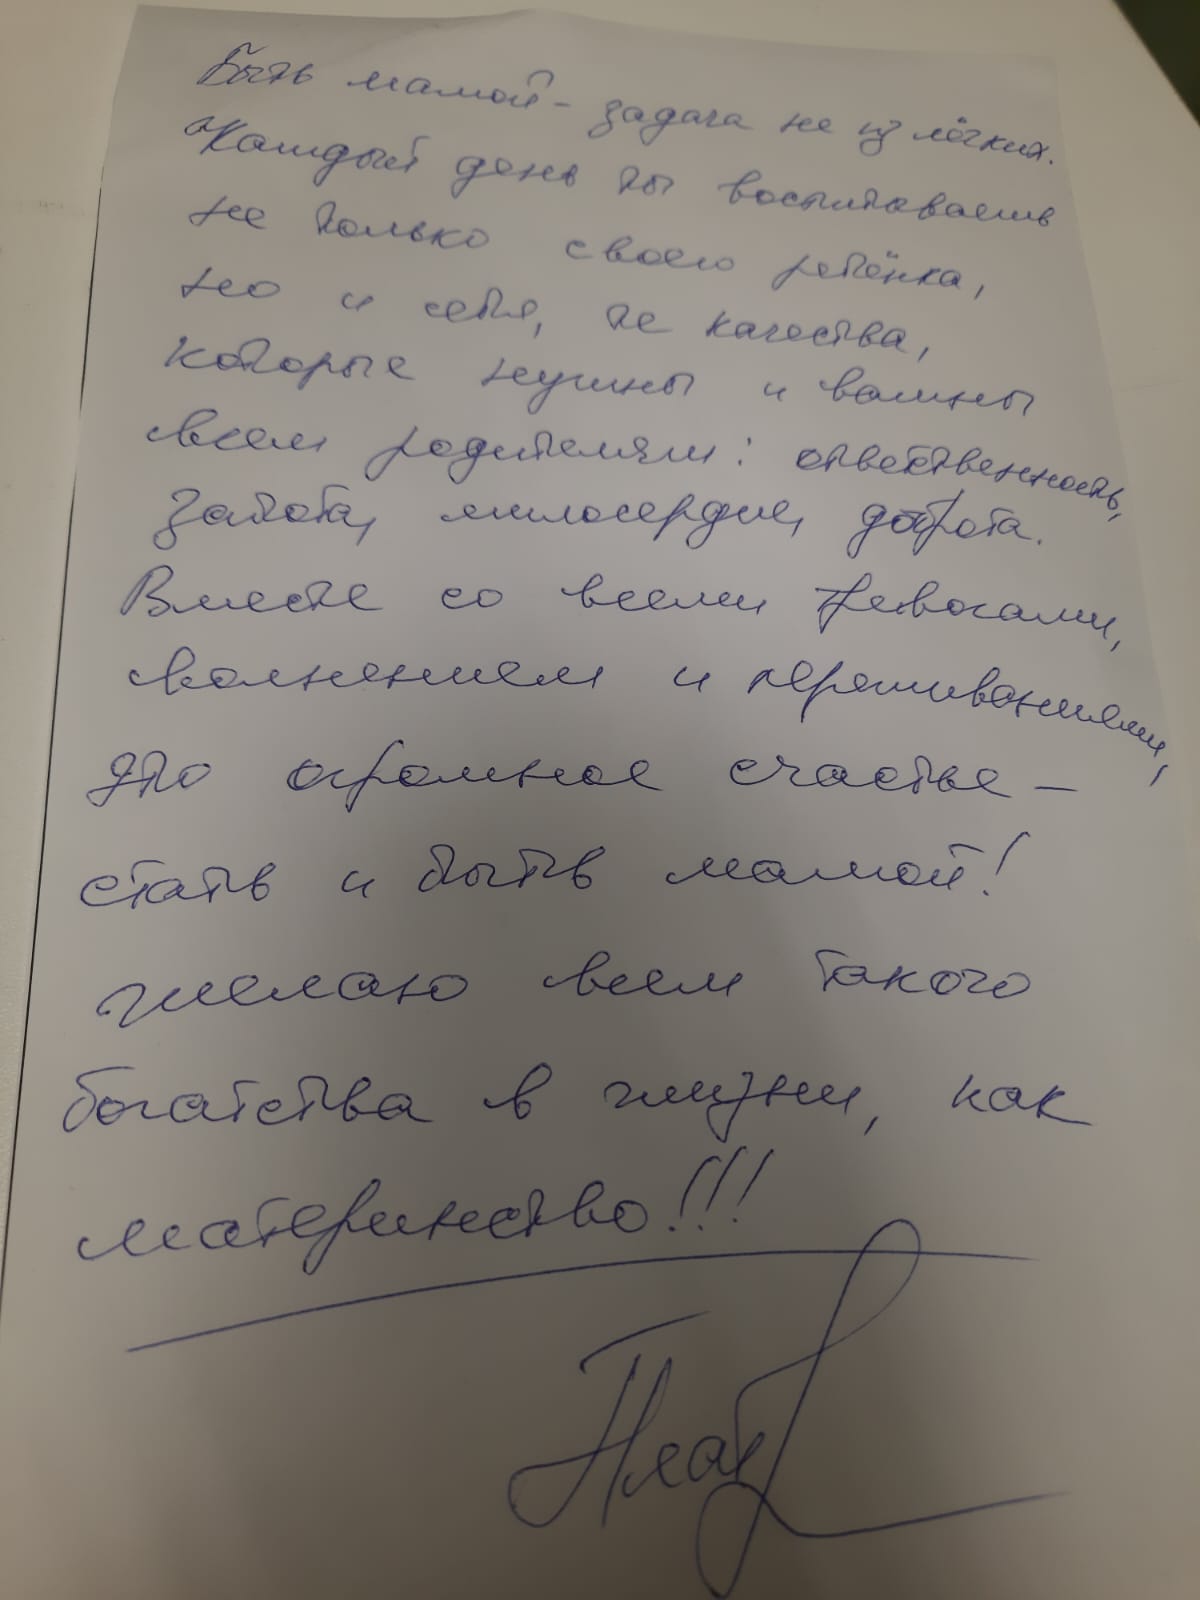 Быть мамой - задача не из лёгких.
Каждый день ты воспитываешь
не только своего ребёнка,
но и себя, те качества,
которые нужны и важны
всем родителям: ответственность,
забота, милосердие, доброта.
Вместе со всеми тревогами,
волнением и переживаниями,
это огромное счастье -
стать и быть мамой!
Желаю всем такого
богатства в жизни, как
материнство!!!